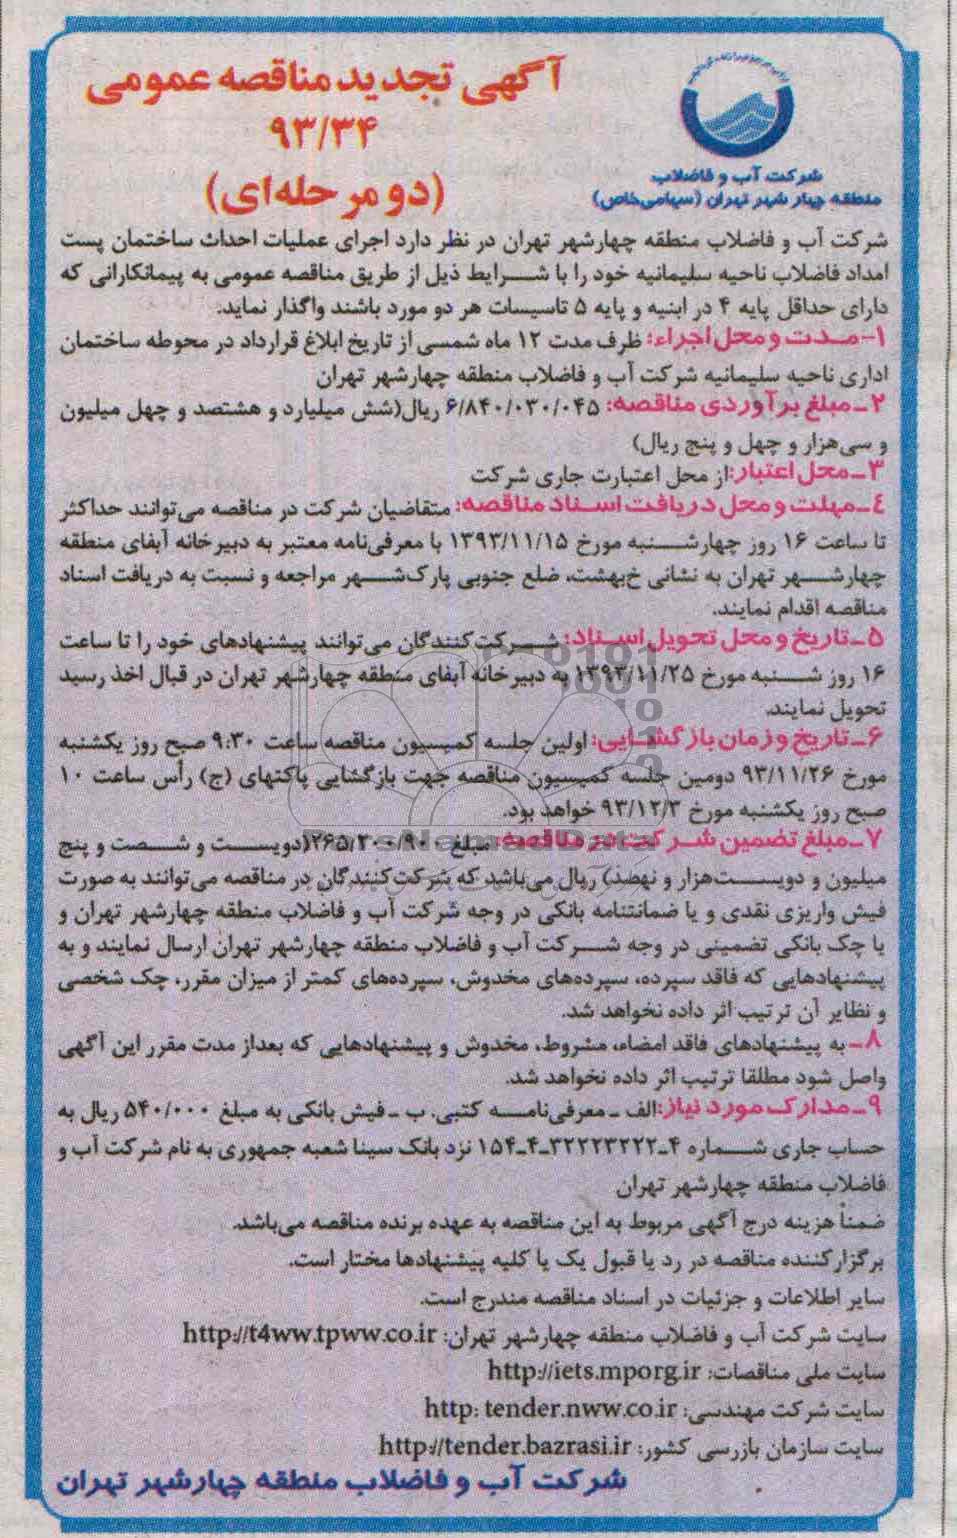 آگهی تجدید مناقصه عمومی
۹۳/۳۴
(دو مرحله‌ای)
شرکت آب و فاضلاب
منطقه چهار شهر تهران (سهامی خاص)
شرکت آب و فاضلاب منطقه چهارشهر تهران در نظر دارد اجرای عملیات احداث ساختمان پست
امداد فاضلاب ناحیه سلیمانیه خود را با شرایط ذیل از طریق مناقصه عمومی به پیمانکارانی که
دارای حداقل پایه ۴ در ابنیه و پایه ۵ تاسیسات هر دو مورد باشند واگذار نماید.
۱-مدت و محل اجراء: ظرف مدت ۱۲ ماه شمسی از تاریخ ابلاغ قرارداد در محوطه ساختمان
اداری ناحیه سلیمانیه شرکت آب و فاضلاب منطقه چهارشهر تهران
۲-مبلغ برآوردی مناقصه: ۶/۸۴۰/۰۳۰/۰۴۵ ریال(شش میلیارد و هشتصد و چهل میلیون
و سی‌هزار و چهل و پنج ریال)
۳-محل اعتبار:از محل اعتبارت جاری شرکت
۴-مهلت و محل دریافت اسناد مناقصه: متقاضیان شرکت در مناقصه می‌توانند حداکثر
تا ساعت ۱۶ روز چهارشنبه مورخ ۱۳۹۳/۱۱/۱۵ با معرفی‌نامه معتبر به دبیرخانه آبفای منطقه
چهارشهر تهران به نشانی خ‌بهشت، ضلع جنوبی پارک‌شهر مراجعه و نسبت به دریافت اسناد
مناقصه اقدام نمایند.
۵-تاریخ و محل تحویل اسناد: شرکت‌کنندگان می‌توانند پیشنهادهای خود را تا ساعت
۱۶ روز شنبه مورخ ۱۳۹۳/۱۱/۲۵ به دبیرخانه آبفای منطقه چهارشهر تهران در قبال اخذ رسید
تحویل نمایند.
۶-تاریخ و زمان بازگشایی: اولین جلسه کمیسیون مناقصه ساعت ۹:۳۰ صبح روز یکشنبه
مورخ ۹۳/۱۱/۲۶ دومین جلسه کمیسیون مناقصه جهت بازگشایی پاکتهای (ج) رأس ساعت ۱۰
صبح روز یکشنبه مورخ ۹۳/۱۲/۳ خواهد بود.
۷-مبلغ تضمین شرکت در مناقصه: مبلغ ۲۶۵/۲۰۰/۹۰۰(دویست و شصت و پنج
میلیون و دویست‌هزار و نهصد) ریال می‌باشد که شرکت‌کنندگان در مناقصه می‌توانند به صورت
فیش واریزی نقدی و یا ضمانتنامه بانکی در وجه شرکت آب و فاضلاب منطقه چهارشهر تهران و
یا چک بانکی تضمینی در وجه شرکت آب و فاضلاب منطقه چهارشهر تهران ارسال نمایند و به
پیشنهادهایی که فاقد سپرده، سپرده‌های مخدوش، سپرده‌های کمتر از میزان مقرر، چک شخصی
و نظایر آن ترتیب اثر داده نخواهد شد.
۸- به پیشنهادهای فاقد امضاء، مشروط، مخدوش و پیشنهادهایی که بعداز مدت مقرر این آگهی
واصل شود مطلقا ترتیب اثر داده نخواهد شد.
۹-مدارک مورد نیاز:الف - معرفی‌نامه کتبی. ب - فیش بانکی به مبلغ ۵۴۰/۰۰۰ ریال به
حساب جاری شماره ۴-۳۲۲۲۳۲۲۲-۴-۱۵۴ نزد بانک سینا شعبه جمهوری به نام شرکت آب و
فاضلاب منطقه چهارشهر تهران
ضمناً هزینه درج آگهی مربوط به این مناقصه به عهده برنده مناقصه می‌باشد.
برگزارکننده مناقصه در رد یا قبول یک یا کلیه پیشنهادها مختار است.
سایر اطلاعات و جزئیات در اسناد مناقصه مندرج است.
سایت شرکت آب و فاضلاب منطقه چهارشهر تهران: http://t4ww.tpww.co.ir
سایت ملی مناقصات: http://iets.mporg.ir
سایت شرکت مهندسی: http: tender.nww.co.ir
سایت سازمان بازرسی کشور: http://tender.bazrasi.ir
شرکت آب و فاضلاب منطقه چهارشهر تهران